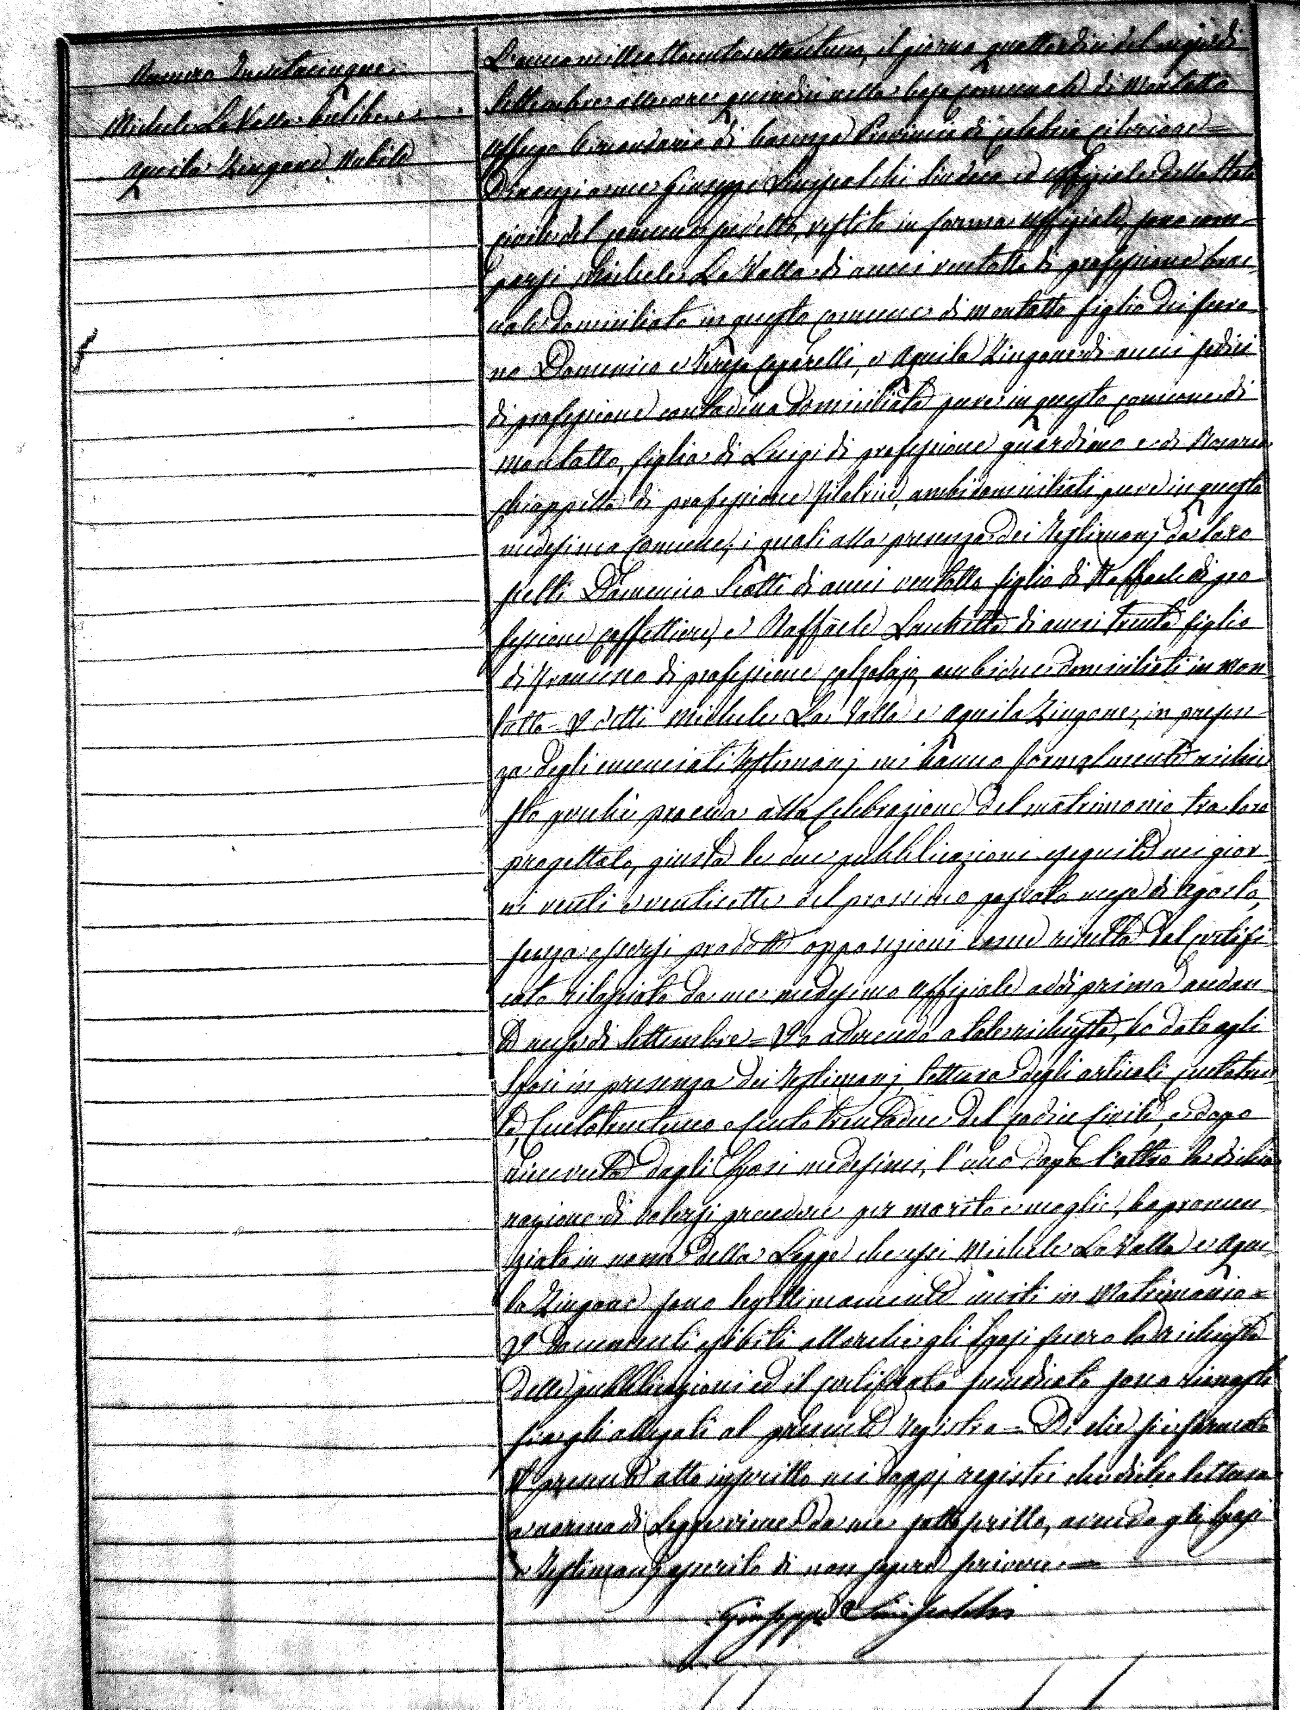 Numero Trentacinque
Michele La Valle celibe e
Aquila Zingone Nubile
L'anno milleottocentosettantuno, il giorno quattordici del mese di
Settembre alle ore quindici nella casa comunale di Montalto
Uffugo Circondario di Cosenza Provincia di Calabria Citeriore =
Dinanzi a me Giuseppe Sinopoli Sindaco ed uffiziale dello Stato
Civile del comune suddetto, vestito in forma uffiziale, sono com-
parsi Michele La Valle di anni ventotto di professione brac-
ciale domiciliato in questo comune di Montalto figlio dei furo-
no Domenico e Teresa Caparelli, e Aquila Zingone di anni sedici
di professione contadina domiciliata pure in questo comune di
Montalto, figlia di Luigi di professione guardiano e di Rosaria
Chiappetta di professione filatrice, ambi domiciliati pure in questo
medesimo Comune; i quali alla presenza dei Testimonj da loro
scelti Domenico Scotti di anni ventotto figlio di Raffaele di pro-
fessione caffettiere, e Raffaele di anni trenta figlio
di Francesco di professione calzolajo, ambidue domiciliati in Mon
talto = I detti Michele La Valle e Aquila Zingone, in presen-
za degli enunciati Testimonj mi hanno formalmente richie
sto perchè proceda alla celebrazione del matrimonio tra loro
progettato, giusta le due pubblicazioni eseguite nei gior-
ni venti e ventisette del prossimo passato mese di Agosto,
senza essersi prodotte opposizioni come risulta dal certifi
cato rilasciato da me medesimo uffiziale addì primo andan
te mese di Settembre = Io aderendo a tale richiesta, ho dato agli
Sposi in presenza dei Testimonj lettura degli articoli centotren
ta, Centotrentuno e Centotrentadue del codice civile, e dopo
ricevuta dagli Sposi medesimi, l'uno dopo l'altro la dichia
razione di volersi prendere per marito e moglie, ho pronun
ziato in nome della Legge che essi Michele La Valle e Aqui
la Zingone sono legittimamente uniti in Matrimonio =
I documenti esibiti allorchè gli Sposi fecero la richiesta
delle pubblicazioni ed il certificato suindicato sono rimasti
fra gli allegati al presente registro = Di che si è formato
il presente atto inscritto nei doppj registri che dietro lettura
a norma di Legge viene da me sottoscritto, avendo gli Sposi
e Testimonj asserito di non sapere scrivere =
Giuseppe